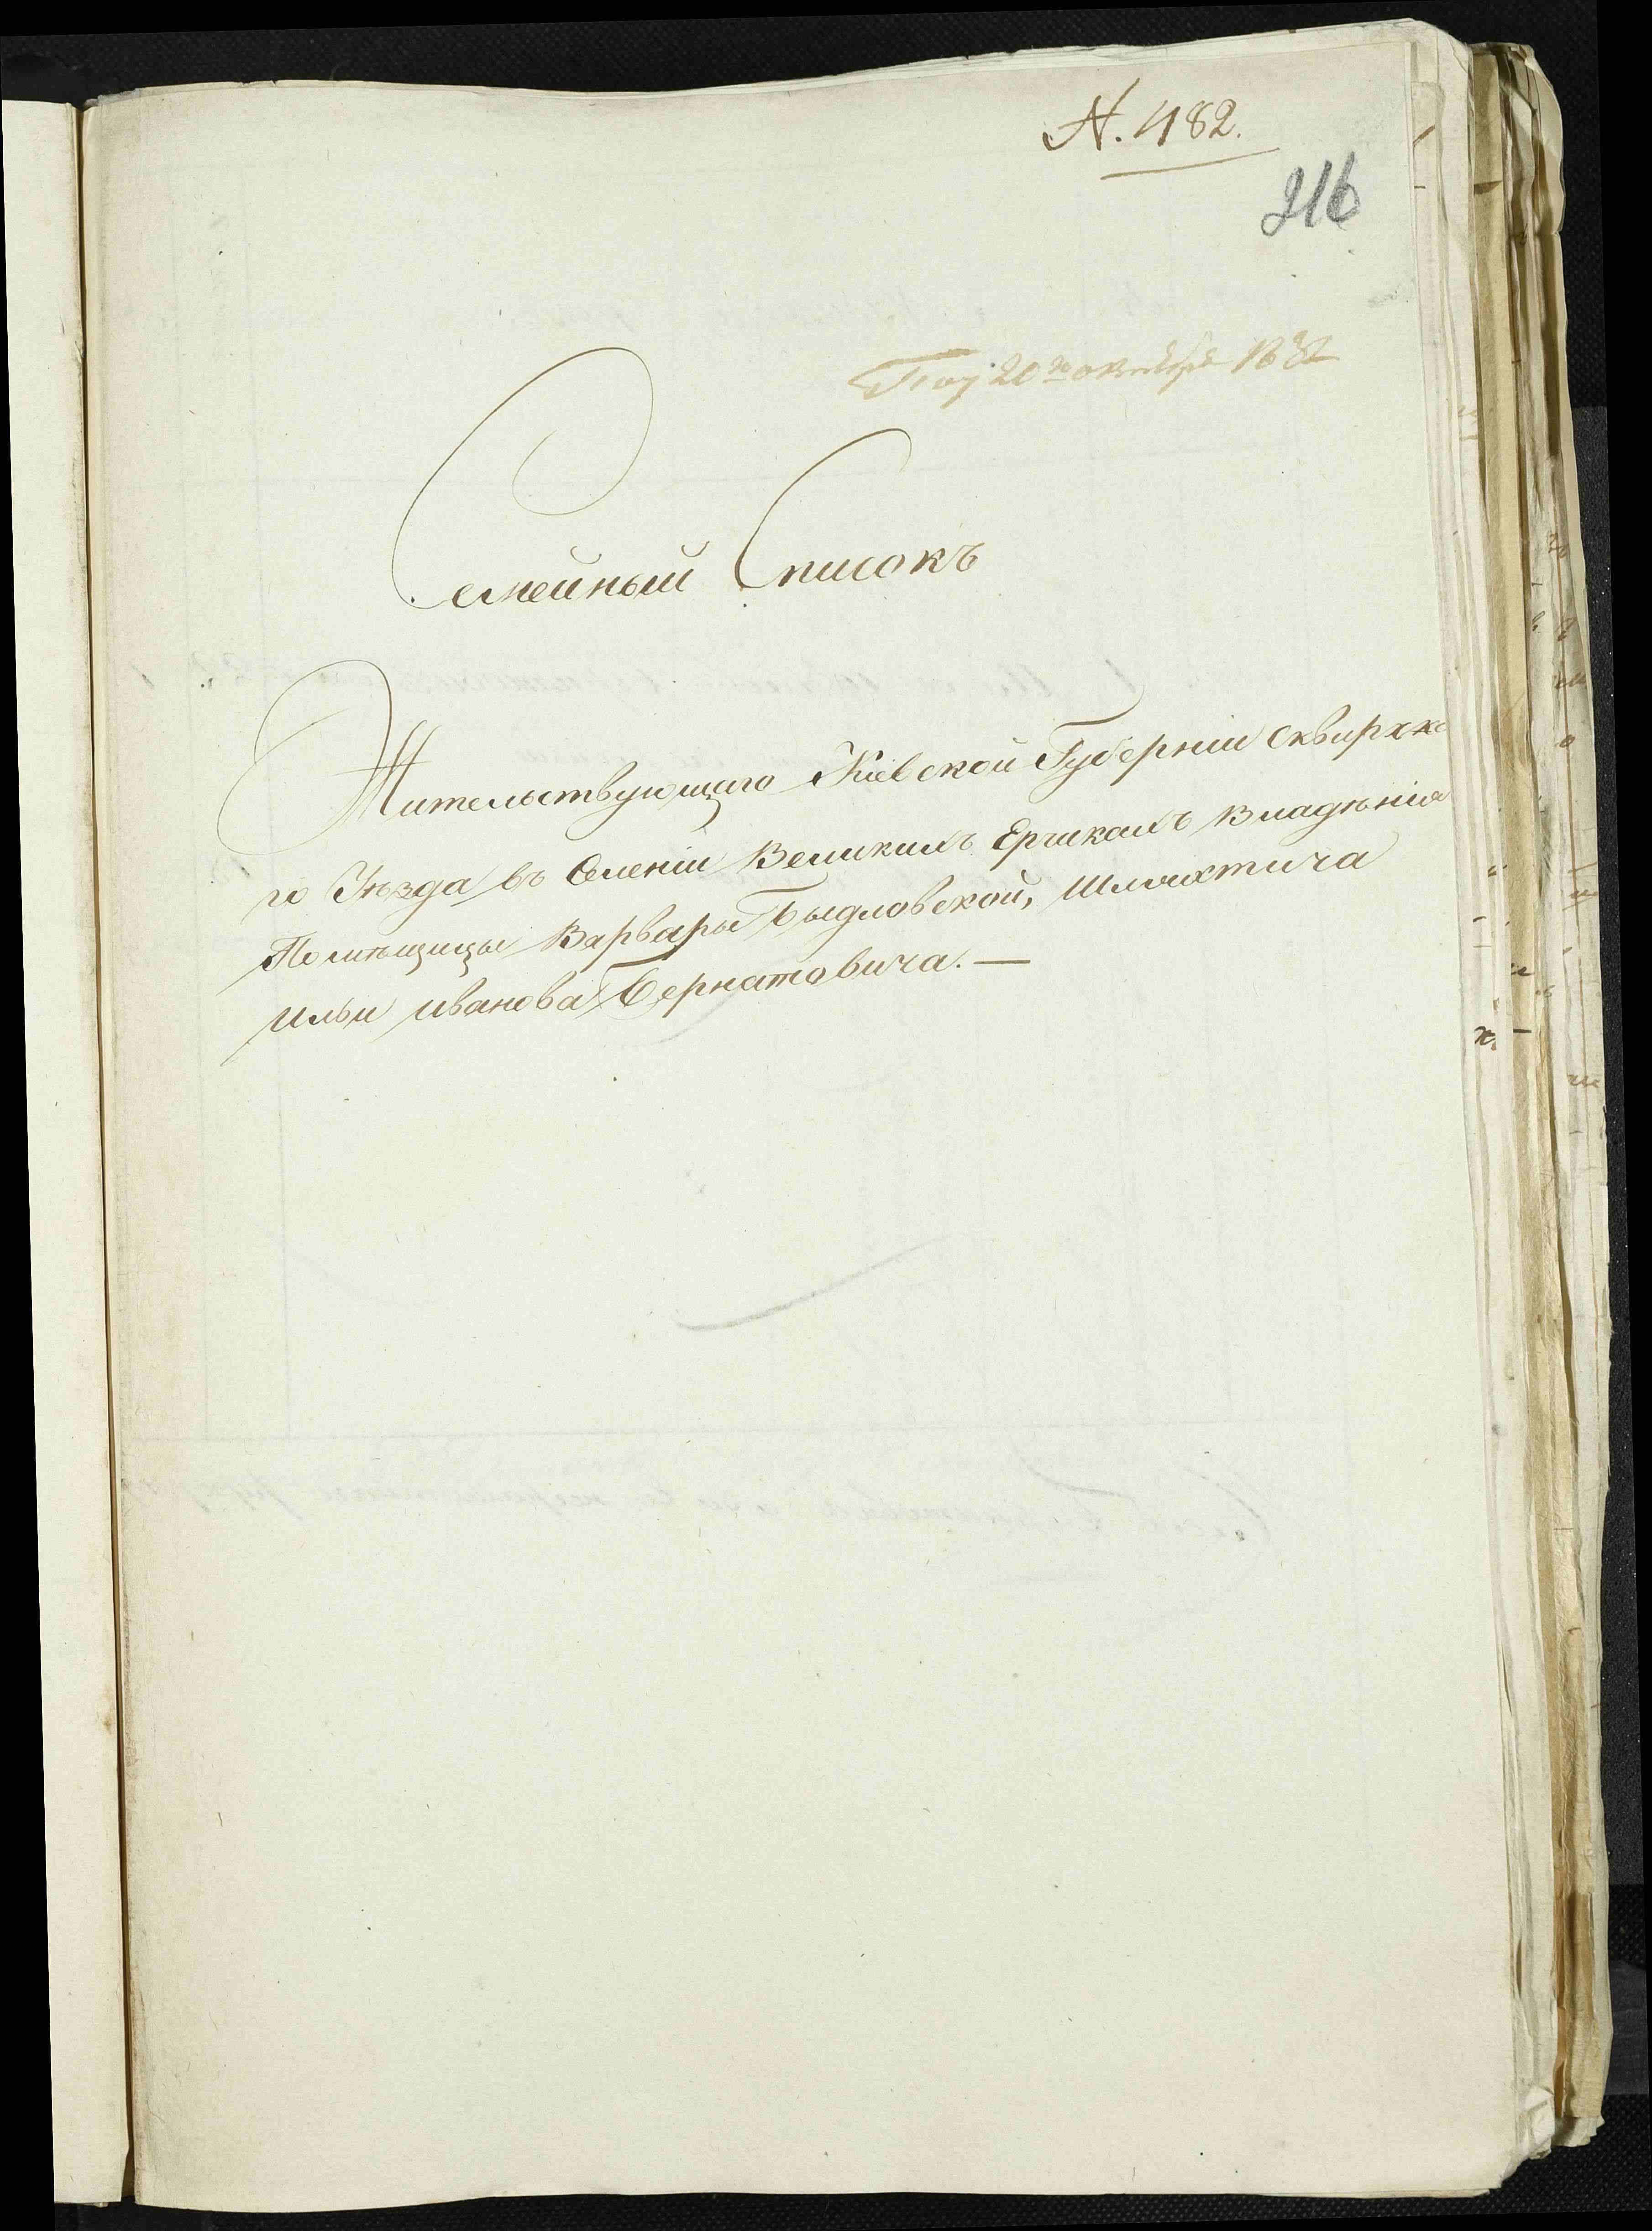 N. 482.
216
20го октября 1832
Семейный Списокъ
Жительствующаго Кіевской Губерніи Сквирско
го Уѣзда въ Селеніи Великихъ Ерчикахъ Владѣнія
Помѣщицы Варвары Быдловской, Шляхтича
Ильи Иванова Бернатовича. —